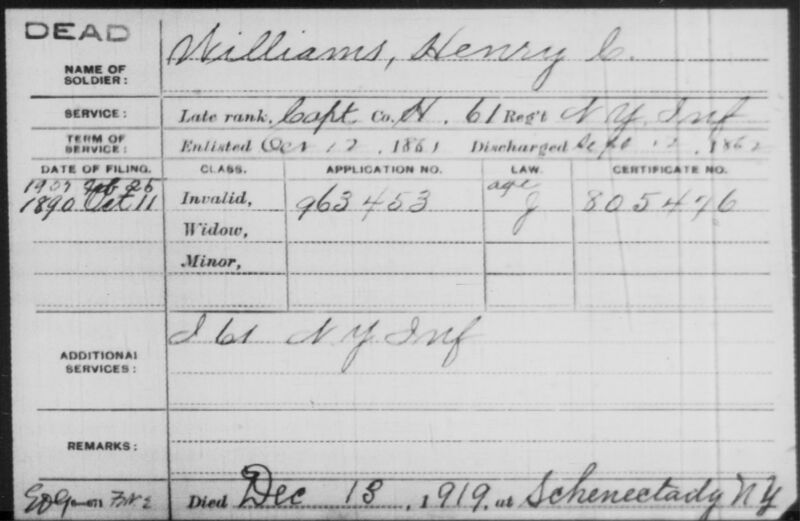 DEAD
NAME OF SOLDIER: Williams, Henry C.
SERVICE: Late rank, Capt Co. H. 61 Reg't N Y Inf
TERM OF SERVICE: Enlisted Oct 12, 1861 Discharged Sept 12, 1862
DATE OF FILING. CLASS. APPLICATION NO. LAW. CERTIFICATE NO.
1907 Feb 26 age
1890 Oct 11 Invalid, 963453 J 805476
Widow,
Minor,
ADDITIONAL SERVICES: I 61 N Y Inf
REMARKS:
Died Dec 13, 1919, at Schenectady N Y